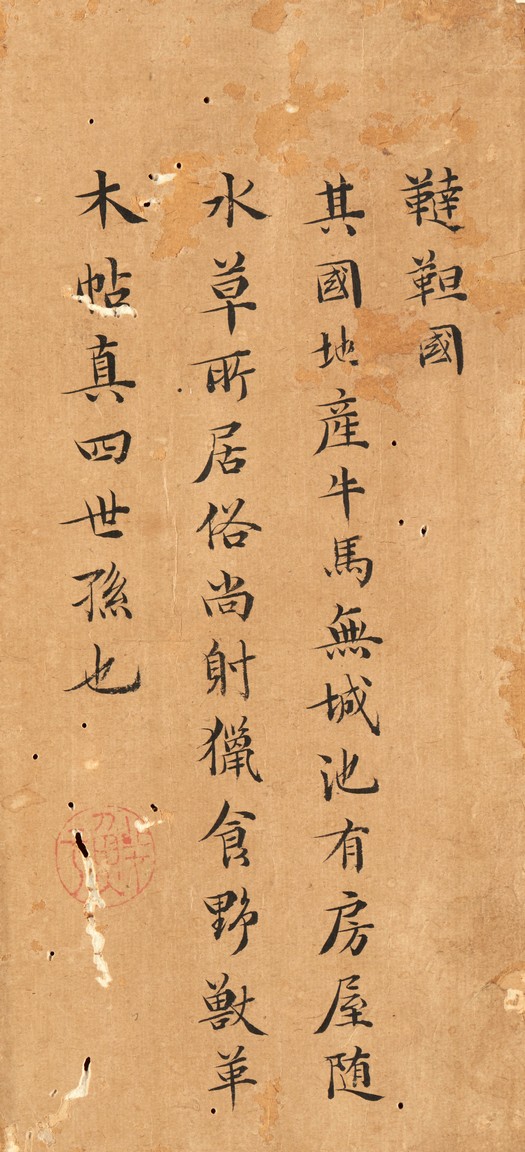 韃靼國
其國地産牛馬無城池有房屋随
水草所居俗尚射獵食野獸革
木帖真四世孫也